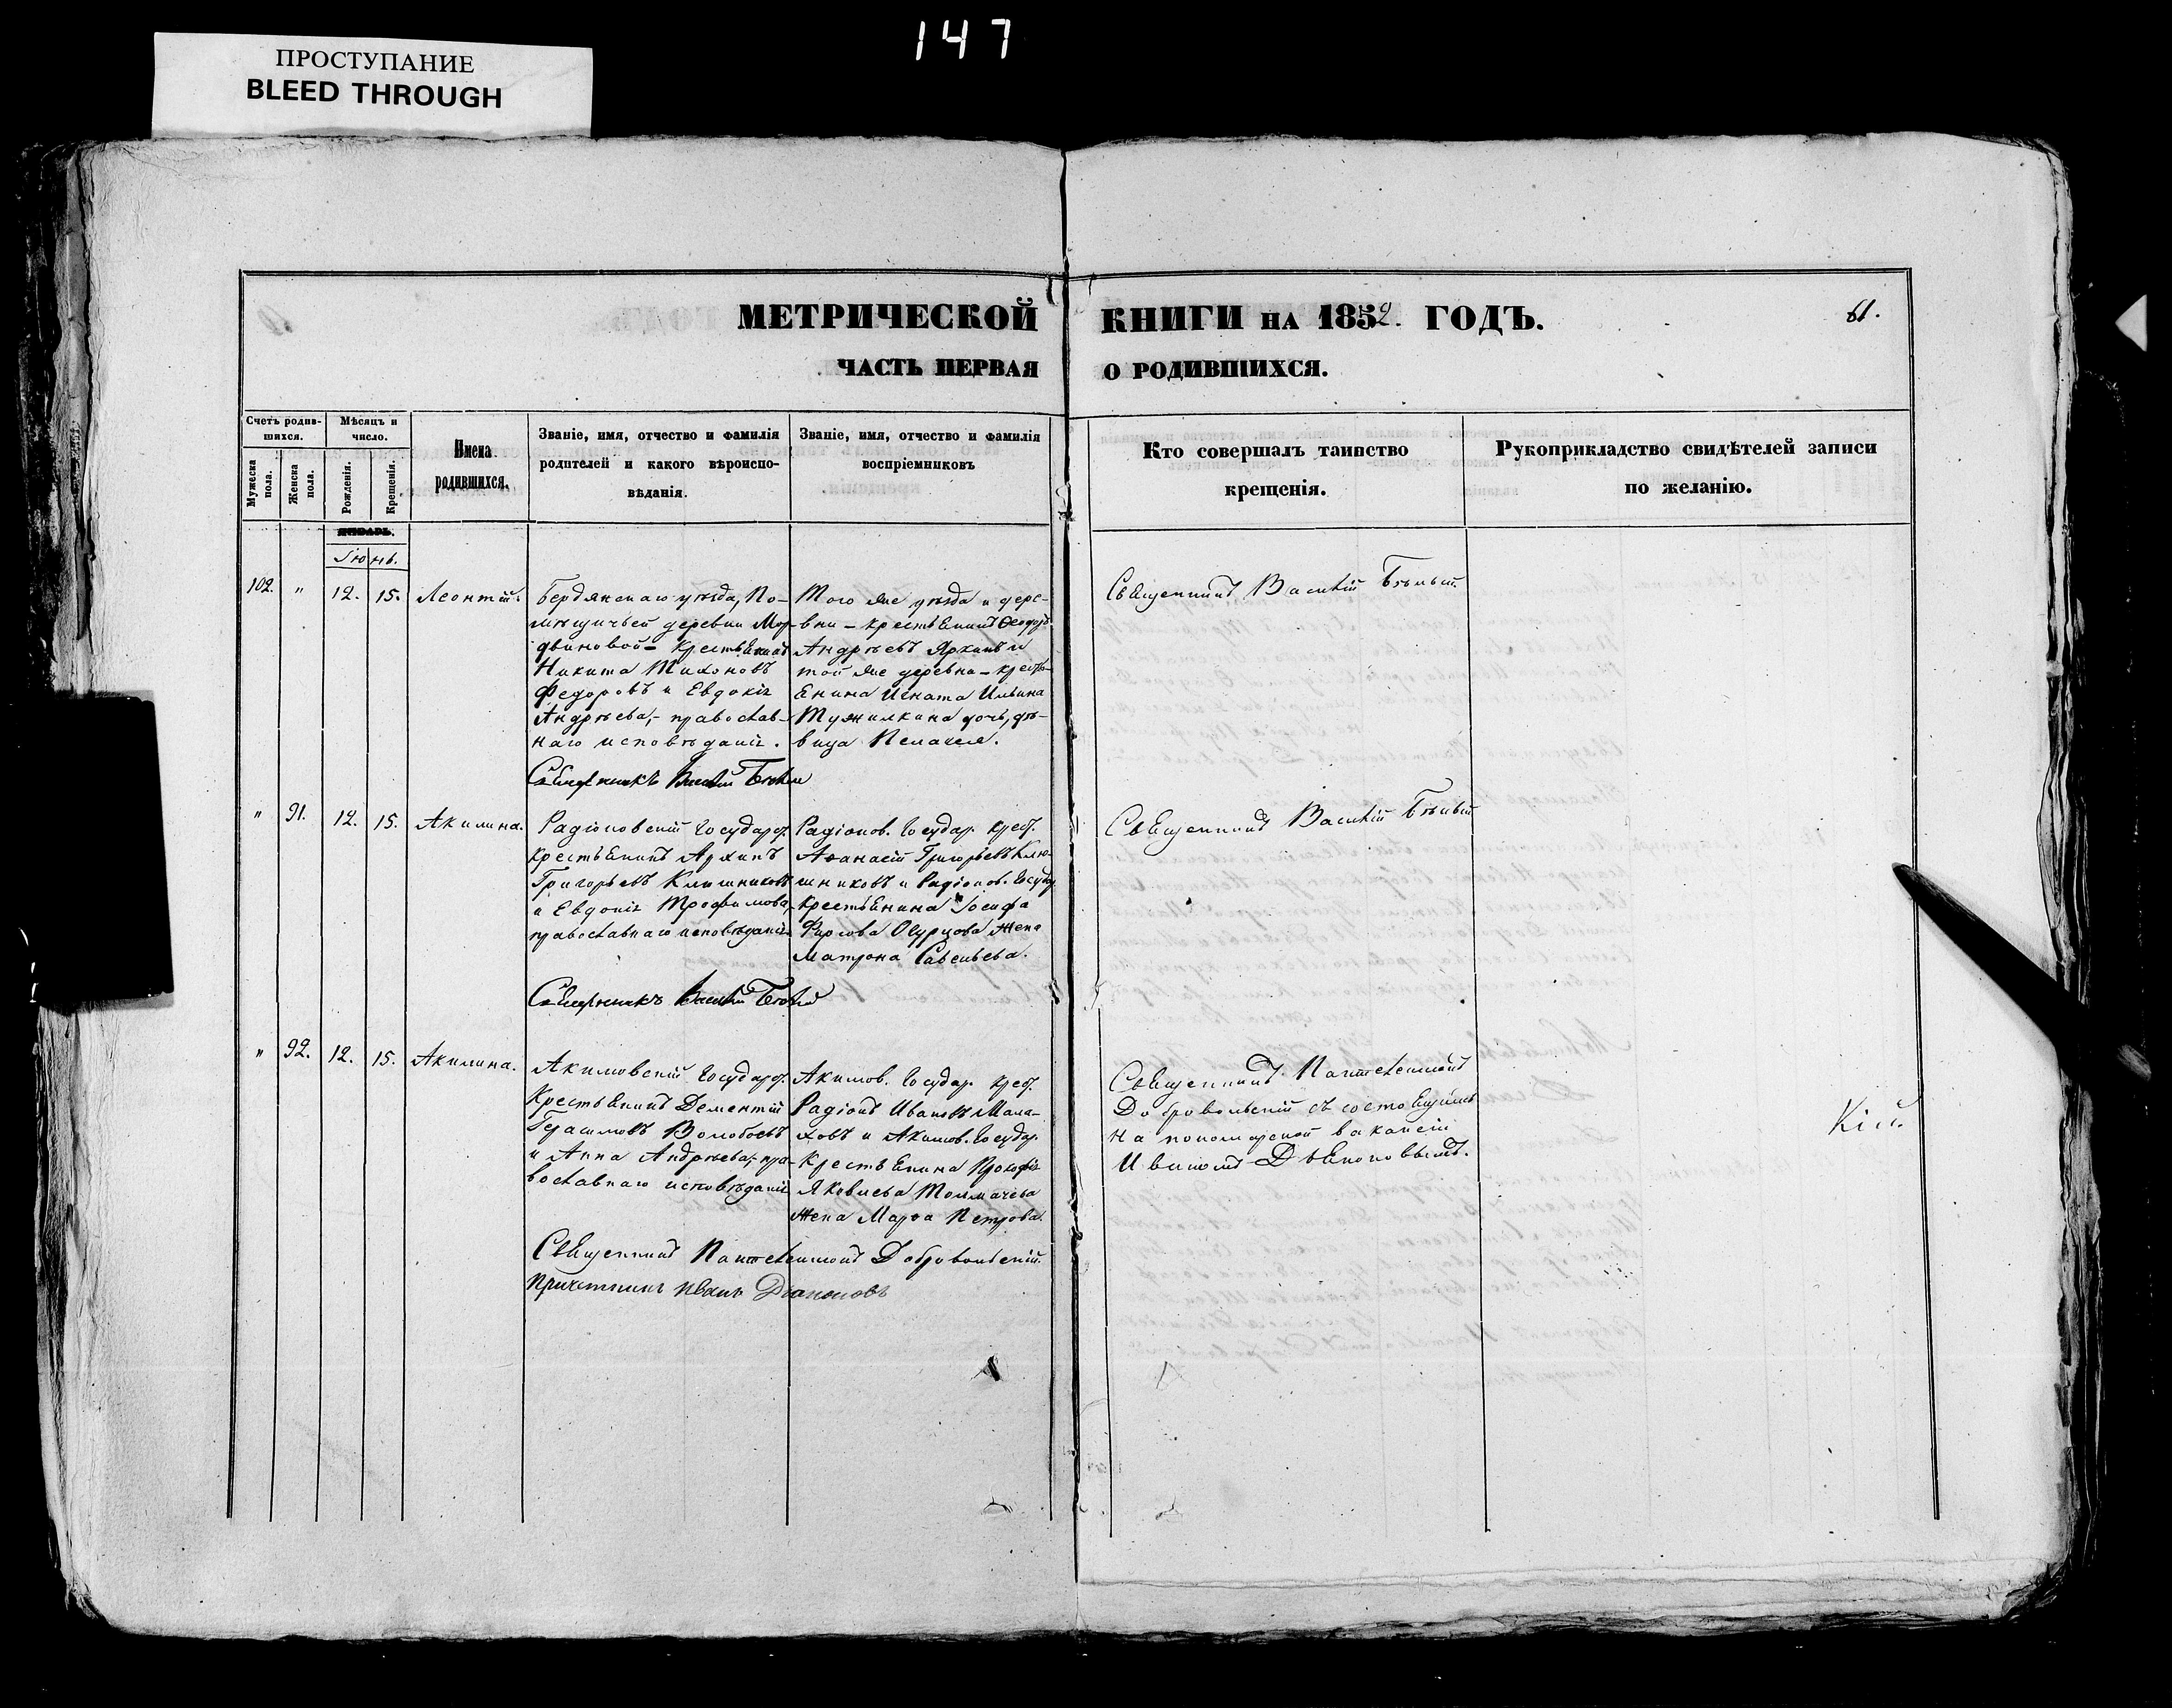 147
ПРОСТУПАНИЕ
BLEED THROUGH
МЕТРИЧЕСКОЙ КНИГИ НА 1852. ГОДЪ.
61.
ЧАСТЬ ПЕРВАЯ О РОДИВШИХСЯ.
Счетъ родив-
шихся.
Мужеска пола.
Женска пола.
Мѣсяцъ и
число.
Рожденія.
Крещенія.
Имена
родившихся.
Званіе, имя, отчество и фамилія
родителей и какого вѣроиспо-
вѣданія.
Званіе, имя, отчество и фамилія
воспріемниковъ
Кто совершалъ таинство
крещенія.
Рукоприкладство свидѣтелей записи
по желанію.
ЯНВАРЬ.
Іюнь.
102. " 12. 15. Леонтій.
Бердянскаго уѣзда, По-
мѣщичьей деревни Мор-
двиновой - крестьянинъ
Никита Тихоновъ
Федоровъ и Евдокія
Андрѣева, - православ-
наго исповѣданія.
Священникъ Василій Бѣлый
Того же уѣзда и дере-
вни - крестьянинъ Ѳеодоръ
Андрѣевъ Архипъ и
той же деревни - кресть-
янина Игната Ильина
Тужилкина дочь, дѣ-
вица Пелагея.
Священникъ Василій Бѣлый
" 91. 12. 15. Акилина.
Радіоновскій Государ.
крестьянинъ Архипъ
Григорьевъ Клишниковъ
и Евдокія Трофимова,
православнаго исповѣданія
Священникъ Василій Бѣлый
Радіонов. Государ. крест.
Аѳанасій Григорьевъ Клю-
шниковъ и Радіонов. Государ.
крестьянина Іосифа
Фирсова Огурцова жена
Матрона Савельева.
Священникъ Василій Бѣлый
" 92. 12. 15. Акилина.
Акимовскій Государ.
Крестьянинъ Дементій
Герасимовъ Волобоевъ
и Анна Андрѣева, - пра-
вославнаго исповѣданія
Священникъ Пантелеимонъ Добровольскій.
Причетникъ Иванъ Дьяконовъ
Акимов. Государ. крест.
Радіонъ Ивановъ Мала-
ховъ и Акимов. Государ.
Крестьянина Прокофія
Яковлева Толмачева
жена Марѳа Петрова.
Священникъ Пантелеимонъ
Добровольскій съ состоящимъ
на пономарской вакансіи
Иваномъ Дьяконовымъ.